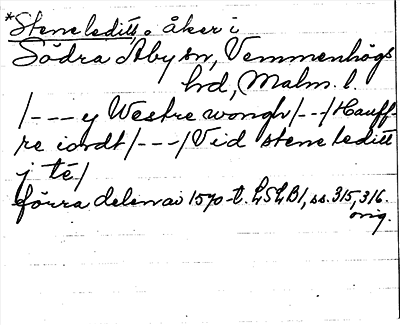 *Stene leditt, åker i
Södra Åby sn, Vemmenhögs
hd, Malm. l.
/---y Westre wongh/---/Hauff-
re iordt/---/Vid stene leditt
j té/
förra delen av 1570-t. LSLB1, ss. 315, 316.
orig.